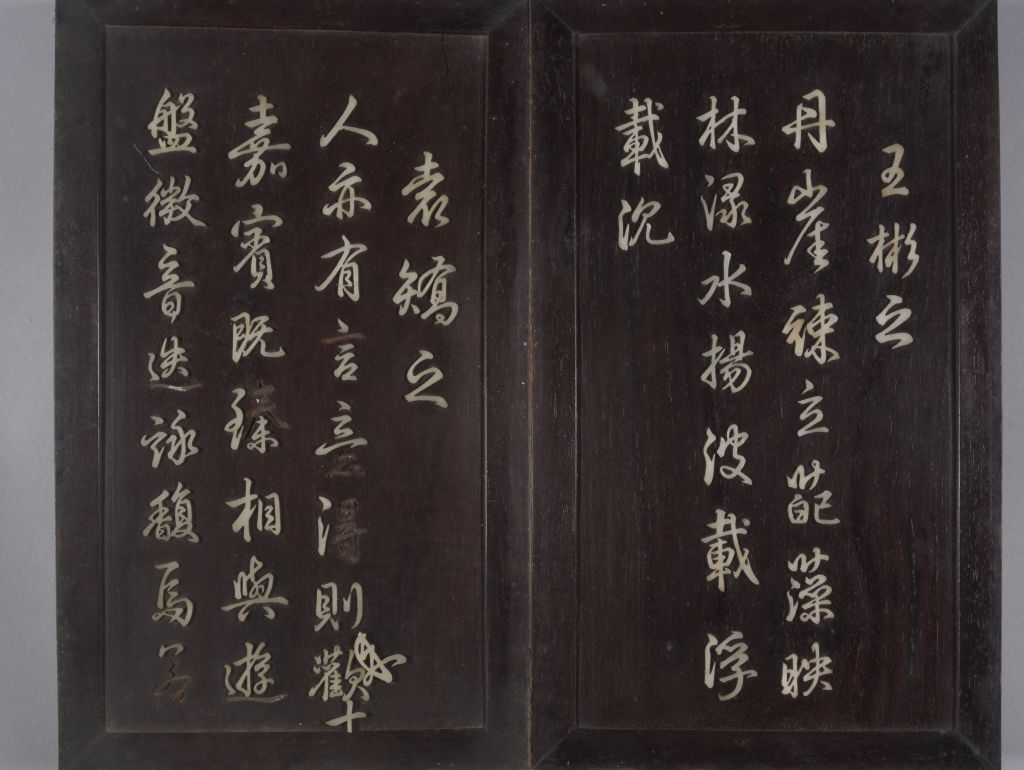 王彬之
丹崖竦立葩藻映
林淥水揚波載浮
載沉
袁矯之
人亦有言意得則歡
嘉賓既臻相與遊
盤微音迭詠馥焉若